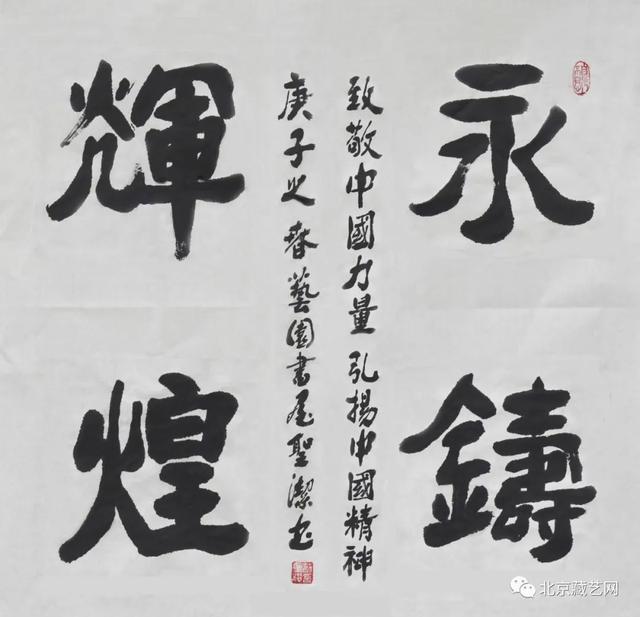 永鑄
輝煌
致敬中國力量弘揚中國精神
庚子之春藝園書屋聖潔書
北京藏艺网